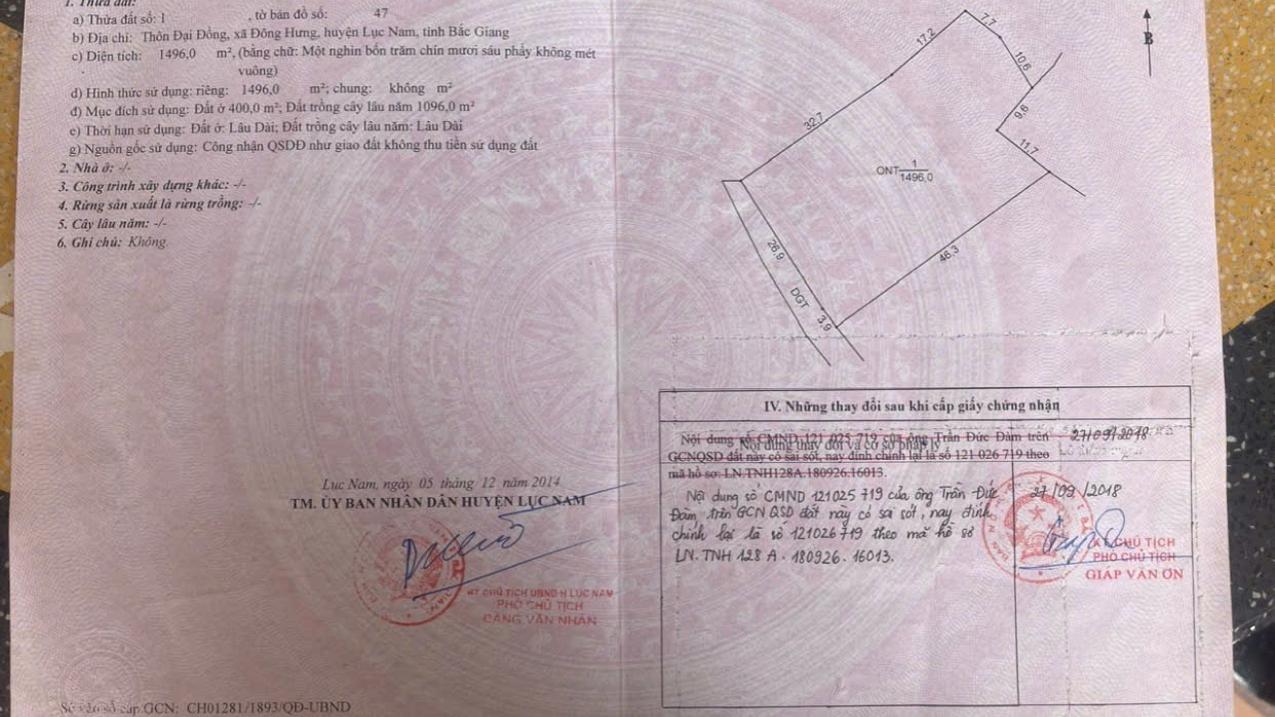 1. Thửa đất:
a) Thửa đất số: 1 , tờ bản đồ số: 47
b) Địa chỉ: Thôn Đại Đồng, xã Đông Hưng, huyện Lục Nam, tỉnh Bắc Giang
c) Diện tích: 1496,0 m², (bằng chữ: Một nghìn bốn trăm chín mươi sáu phẩy không mét
vuông)
d) Hình thức sử dụng: riêng: 1496,0 m²; chung: không m²
đ) Mục đích sử dụng: Đất ở 400,0 m²; Đất trồng cây lâu năm 1096,0 m²
e) Thời hạn sử dụng: Đất ở: Lâu Dài; Đất trồng cây lâu năm: Lâu Dài
g) Nguồn gốc sử dụng: Công nhận QSDĐ như giao đất không thu tiền sử dụng đất
2. Nhà ở: -/-
3. Công trình xây dựng khác: -/-
4. Rừng sản xuất là rừng trồng: -/-
5. Cây lâu năm: -/-
6. Ghi chú: Không
Lục Nam, ngày 05 tháng 12 năm 2014
TM. ỦY BAN NHÂN DÂN HUYỆN LỤC NAM
KT CHỦ TỊCH UBND H LỤC NAM
PHÓ CHỦ TỊCH
ĐẶNG VĂN NHÀN
Số vào sổ cấp GCN: CH01281/1893/QĐ-UBND
B
7,7
17,2
10,6
9,6
32,7
11,7
ONT 1
1496,0
26,9
46,3
DGT
3,9
IV. Những thay đổi sau khi cấp giấy chứng nhận
Nội dung thay đổi và cơ sở pháp lý
Nội dung số CMND 121 025 719 của ông Trần Đức Đàm trên 27/09/2018
GCNQSD đất này có sai sót, nay đính chính lại là số 121 026 719 theo
mã hồ sơ: LN.TNH128A.180926.16013.
Nội dung số CMND 121025719 của ông Trần Đức 27/09/2018
Đàm trên GCN QSD đất này có sai sót, nay đính
chính lại là số 121026719 theo mã hồ sơ
LN. TNH 128 A. 180926. 16013.
KT CHỦ TỊCH
PHÓ CHỦ TỊCH
GIÁP VĂN ƠN